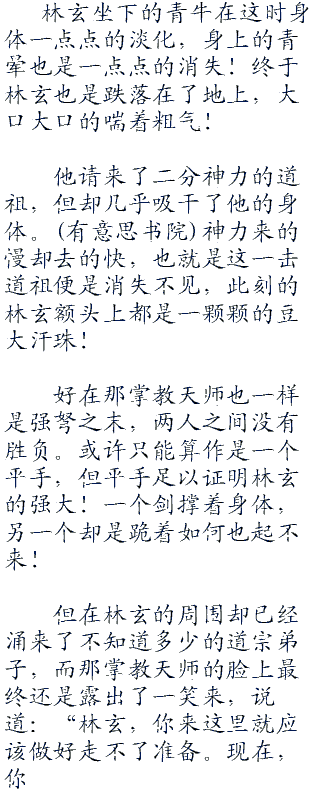 林玄坐下的青牛在这时身
体一点点的淡化，身上的青
晕也是一点点的消失！终于
林玄也是跌落在了地上，大
口大口的喘着粗气！
他请来了二分神力的道
祖，但却几乎吸干了他的身
体。(有意思书院)神力来的
慢却去的快，也就是这一击
道祖便是消失不见，此刻的
林玄额头上都是一颗颗的豆
大汗珠！
好在那掌教天师也一样
是强弩之末，两人之间没有
胜负。或许只能算作是一个
平手，但平手足以证明林玄
的强大！一个剑撑着身体，
另一个却是跪着如何也起不
来！
但在林玄的周围却已经
涌来了不知道多少的道宗弟
子，而那掌教天师的脸上最
终还是露出了一笑来，说
道：“林玄，你来这里就应
该做好走不了准备。现在，
你